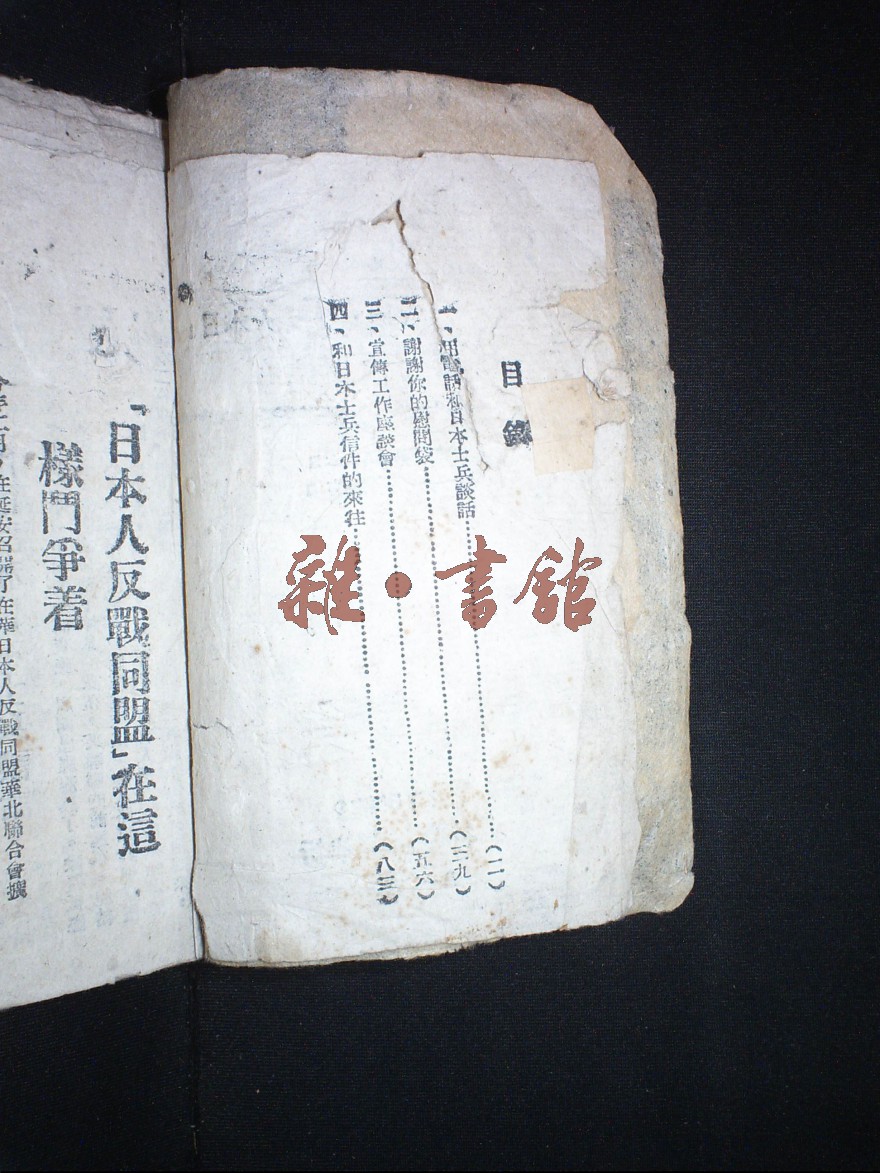 目錄
一、用電話和日本士兵談話……（二）
二、謝謝你的慰問袋……（三九）
三、宣傳工作座談會……（五六）
四、和日本士兵信件的來往……（八三）
「日本人反戰同盟」在這
樣鬥爭着
在延安召開了在華日本人反戰同盟華北聯合會擴
雜·書館